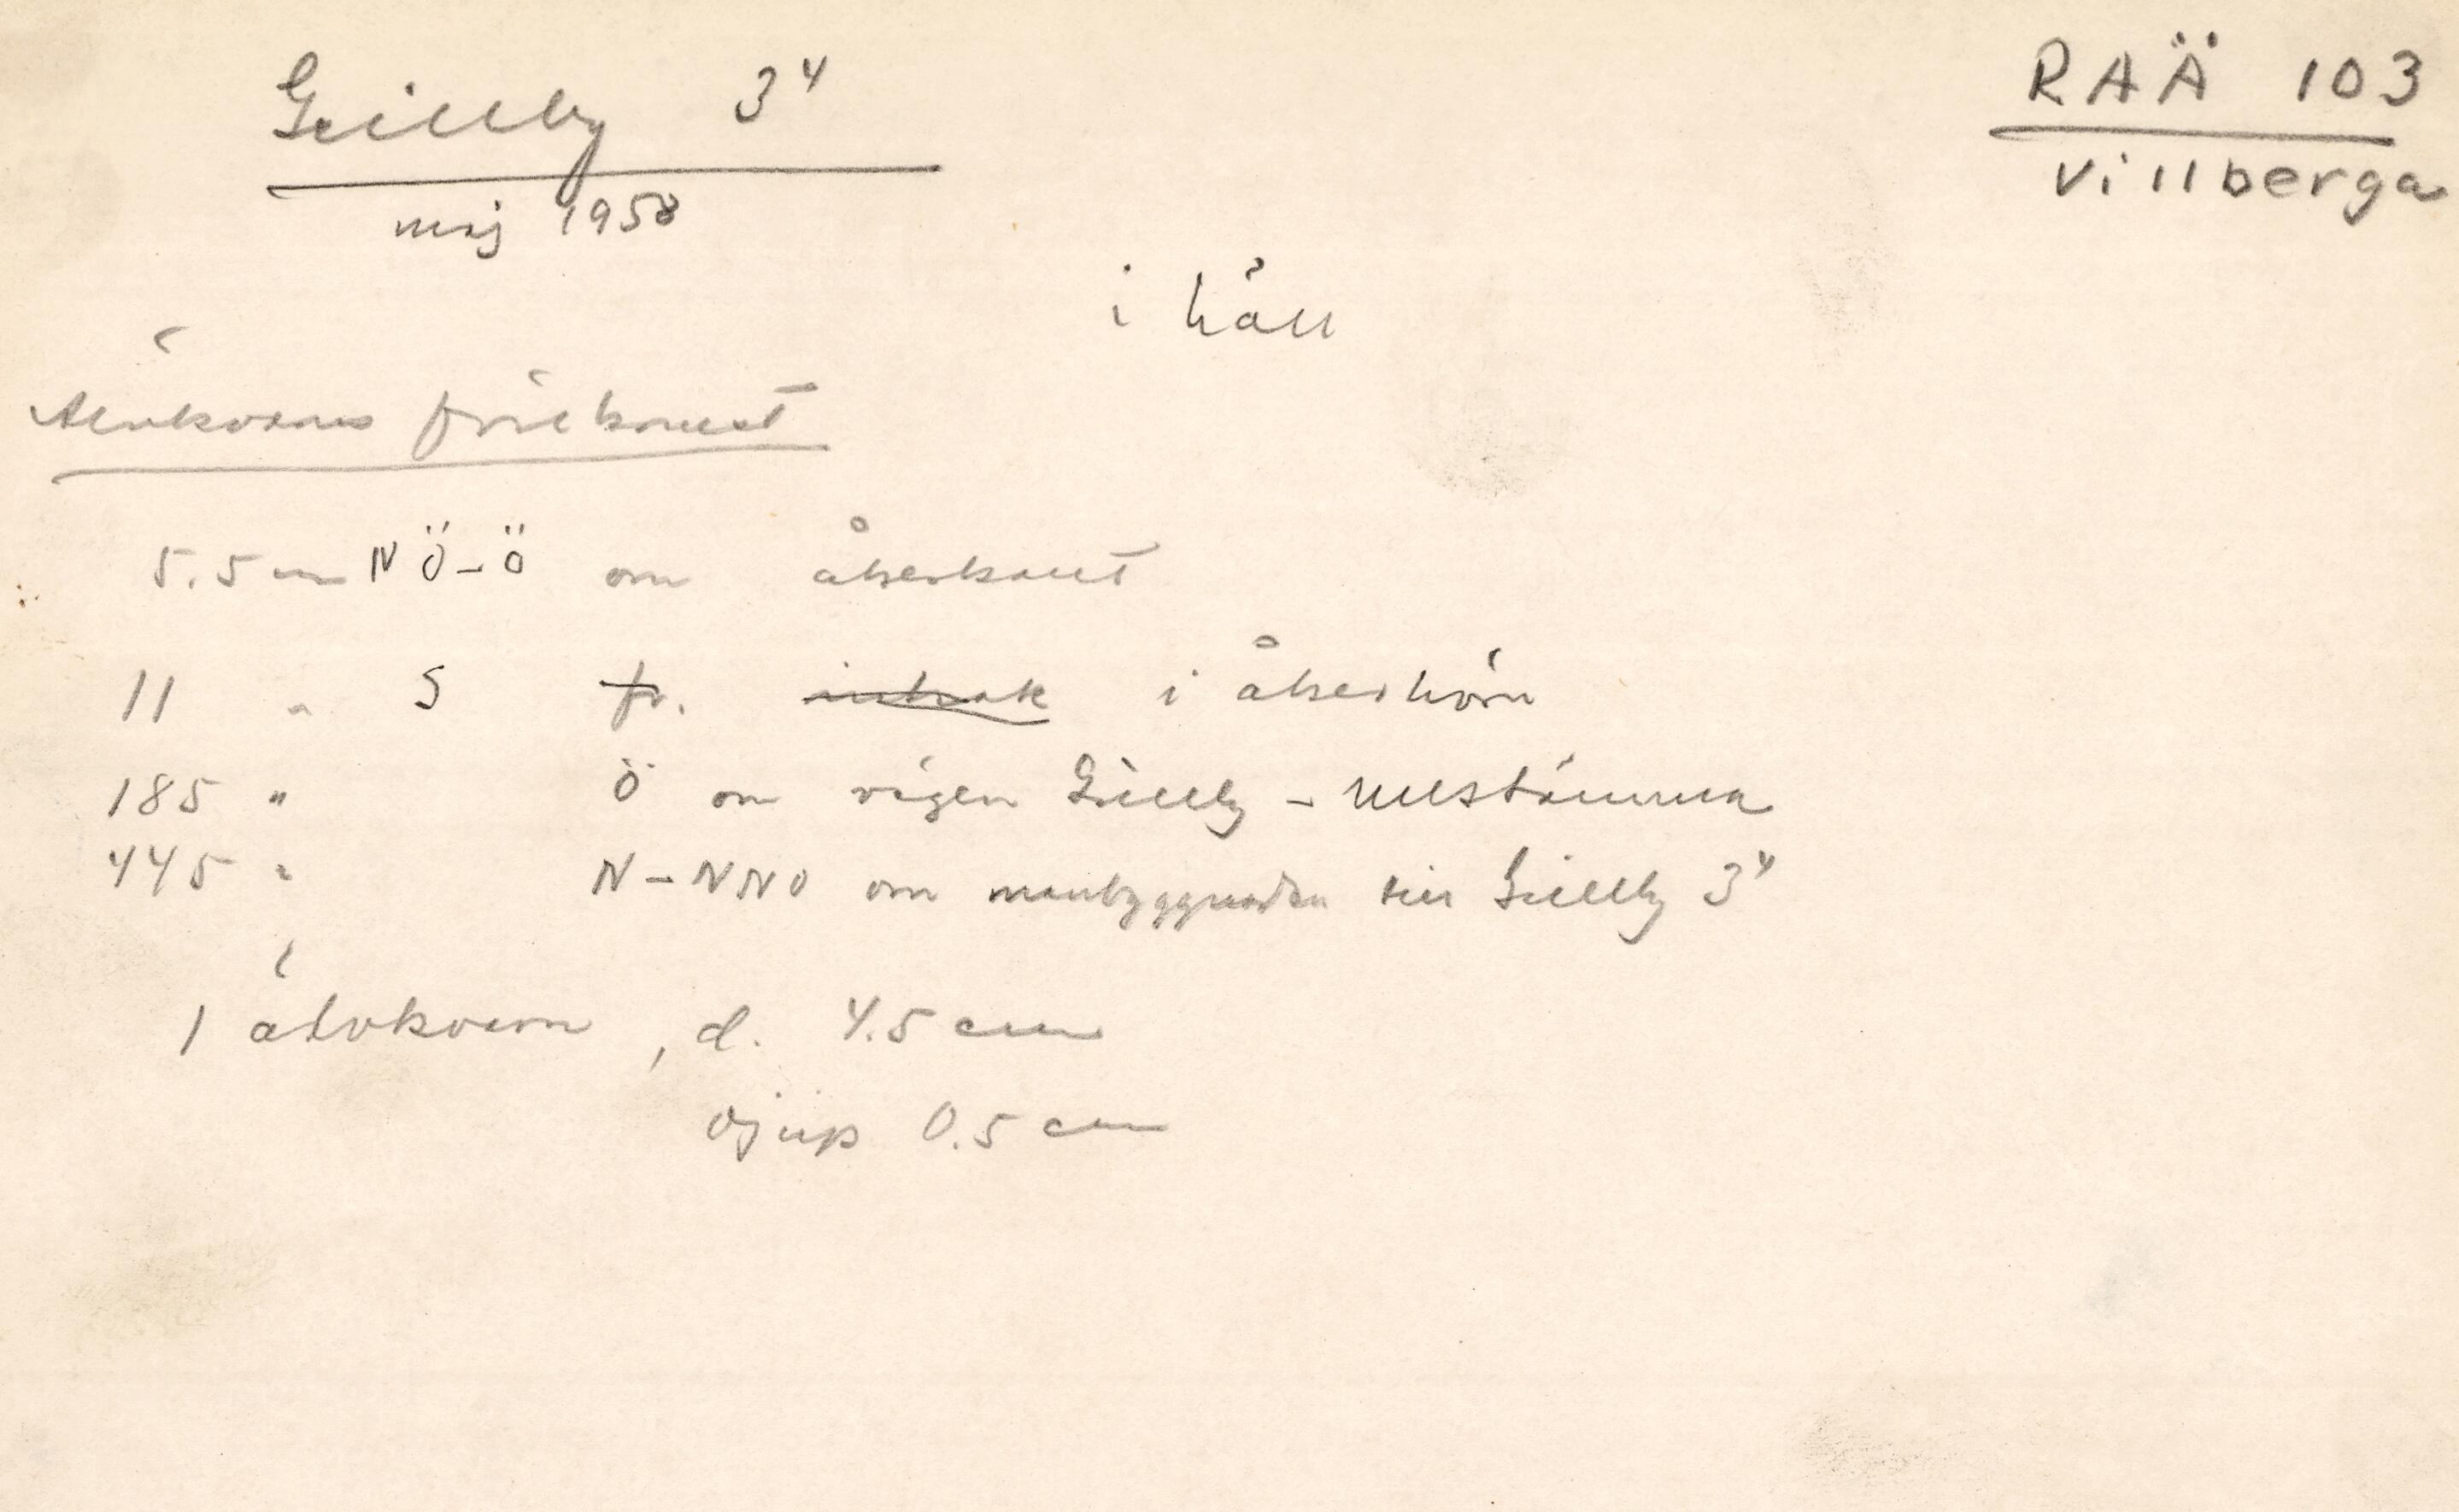 Gällby 3⁴
RAÄ 103
Villberga
maj 1958
i häll
Älvkvarnsförekomst
5.5 m NÖ-Ö om åkerkant
11 " S fr. inhak i åkerhörn
185 " Ö om vägen Gällby -
445 " N-NNO om manbyggnaden till Gällby 3⁴
1 älvkvarn, d. 4.5 cm
djup 0.5 cm